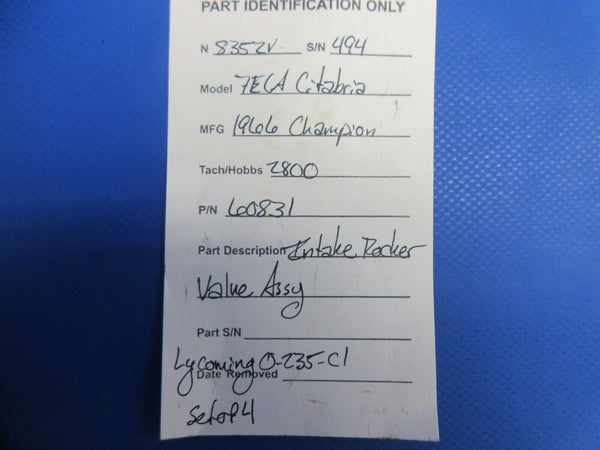 PART IDENTIFICATION ONLY
N 8352V S/N 494
Model 7ECA Citabria
MFG 1966 Champion
Tach/Hobbs 2800
P/N 60831
Part Description Intake Rocker
Value Assy
Part S/N
Lycoming O-235-C1
Date Removed
Set of 4